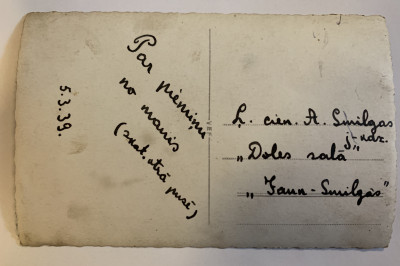 Par piemiņu
no manis
(skat. otrā pusē)
5.3.39.
Ļ. cien. A. Smilgas
j-ndz.
„Doles salā
„Jaun-Smilgās"